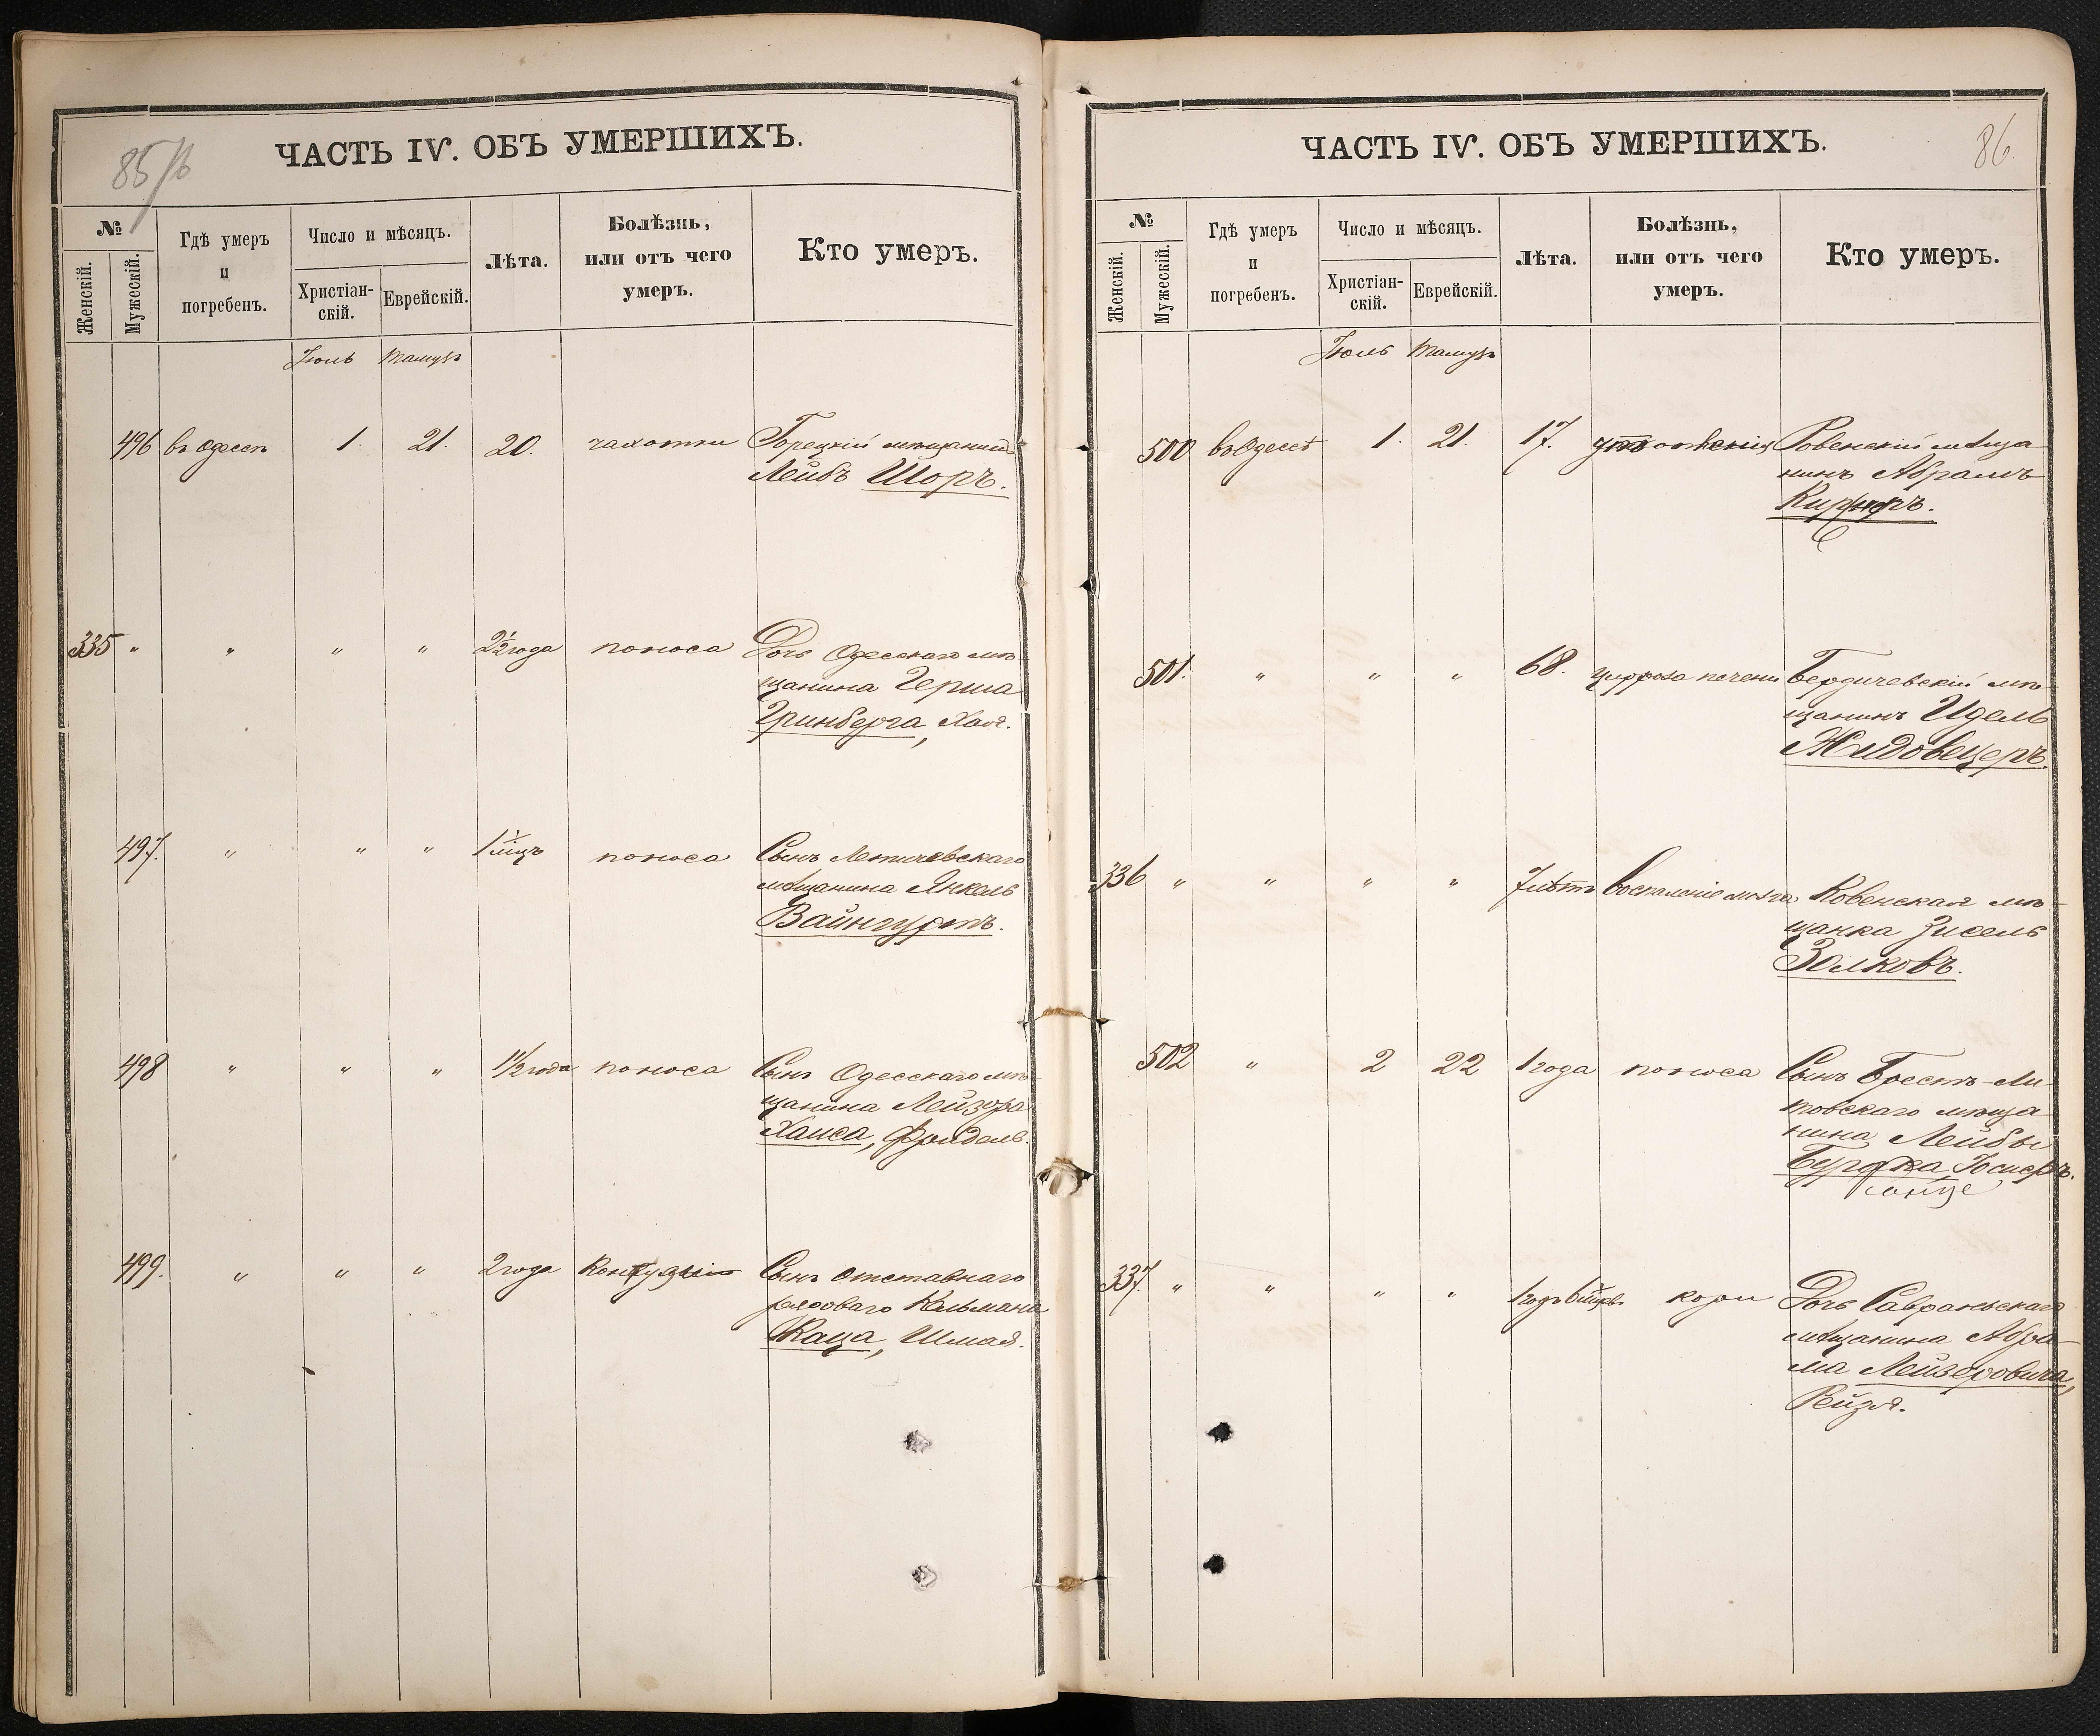 85/б
ЧАСТЬ IV. ОБЪ УМЕРШИХЪ.
№
Женскій.
Мужескій.
Гдѣ умеръ
и
погребенъ.
Число и мѣсяцъ.
Христіан-
скій.
Еврейскій.
Лѣта.
Болѣзнь,
или отъ чего
умеръ.
Кто умеръ.
Іюль Тамузъ
496 въ Одессѣ 1. 21. 20. чахотки Горецкій мѣщанинъ
Лейбъ Шоръ.
335 " " " " 2½ года поноса Дочь Одесскаго мѣ-
щанина Герша
Гринберга, Хая.
497. " " " 1 мѣсц поноса Сынъ Летичевскаго
мѣщанина Янкель
Вайнгуртъ.
498 " " " 1½ года поноса Сынъ Одесскаго мѣ-
щанина Лейзора
Хаиса, Фроидель.
499. " " " 2 года Контузіи Сынъ отставнаго
рядоваго Кельмана
Каца, Шмая.
ЧАСТЬ IV. ОБЪ УМЕРШИХЪ.
86.
№
Женскій.
Мужескій.
Гдѣ умеръ
и
погребенъ.
Число и мѣсяцъ.
Христіан-
скій.
Еврейскій.
Лѣта.
Болѣзнь,
или отъ чего
умеръ.
Кто умеръ.
Іюль Тамузъ
500 въ Одессѣ 1. 21. 17. Ровенскій мѣща-
нинъ Абрамъ
501. " " " 68. цирроза печени Бердичевскій мѣ-
щанинъ Идель
Жидовецеръ.
336 " " " " 7 лѣтъ Воспаленіе мозга Ковенская мѣ-
щанка Зисель
Золковъ.
502 " 2 22 1 года поноса Сынъ Брестъ-Ли-
товскаго мѣща-
нина Лейбы
337. " " " " 1 годъ 6 мцевъ кори Дочь Савраньскаго
мѣщанина Абра-
ма Лейзеровича,
Рейзя.